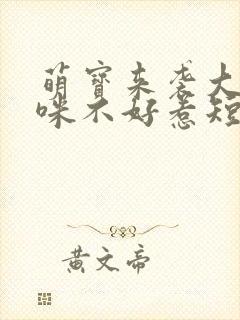 萌宝来袭大
咪不好惹短
黄文帝